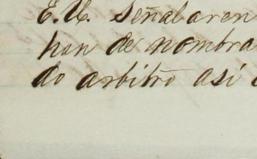 E.U. Señalaren
han de nombra
do arbitro así